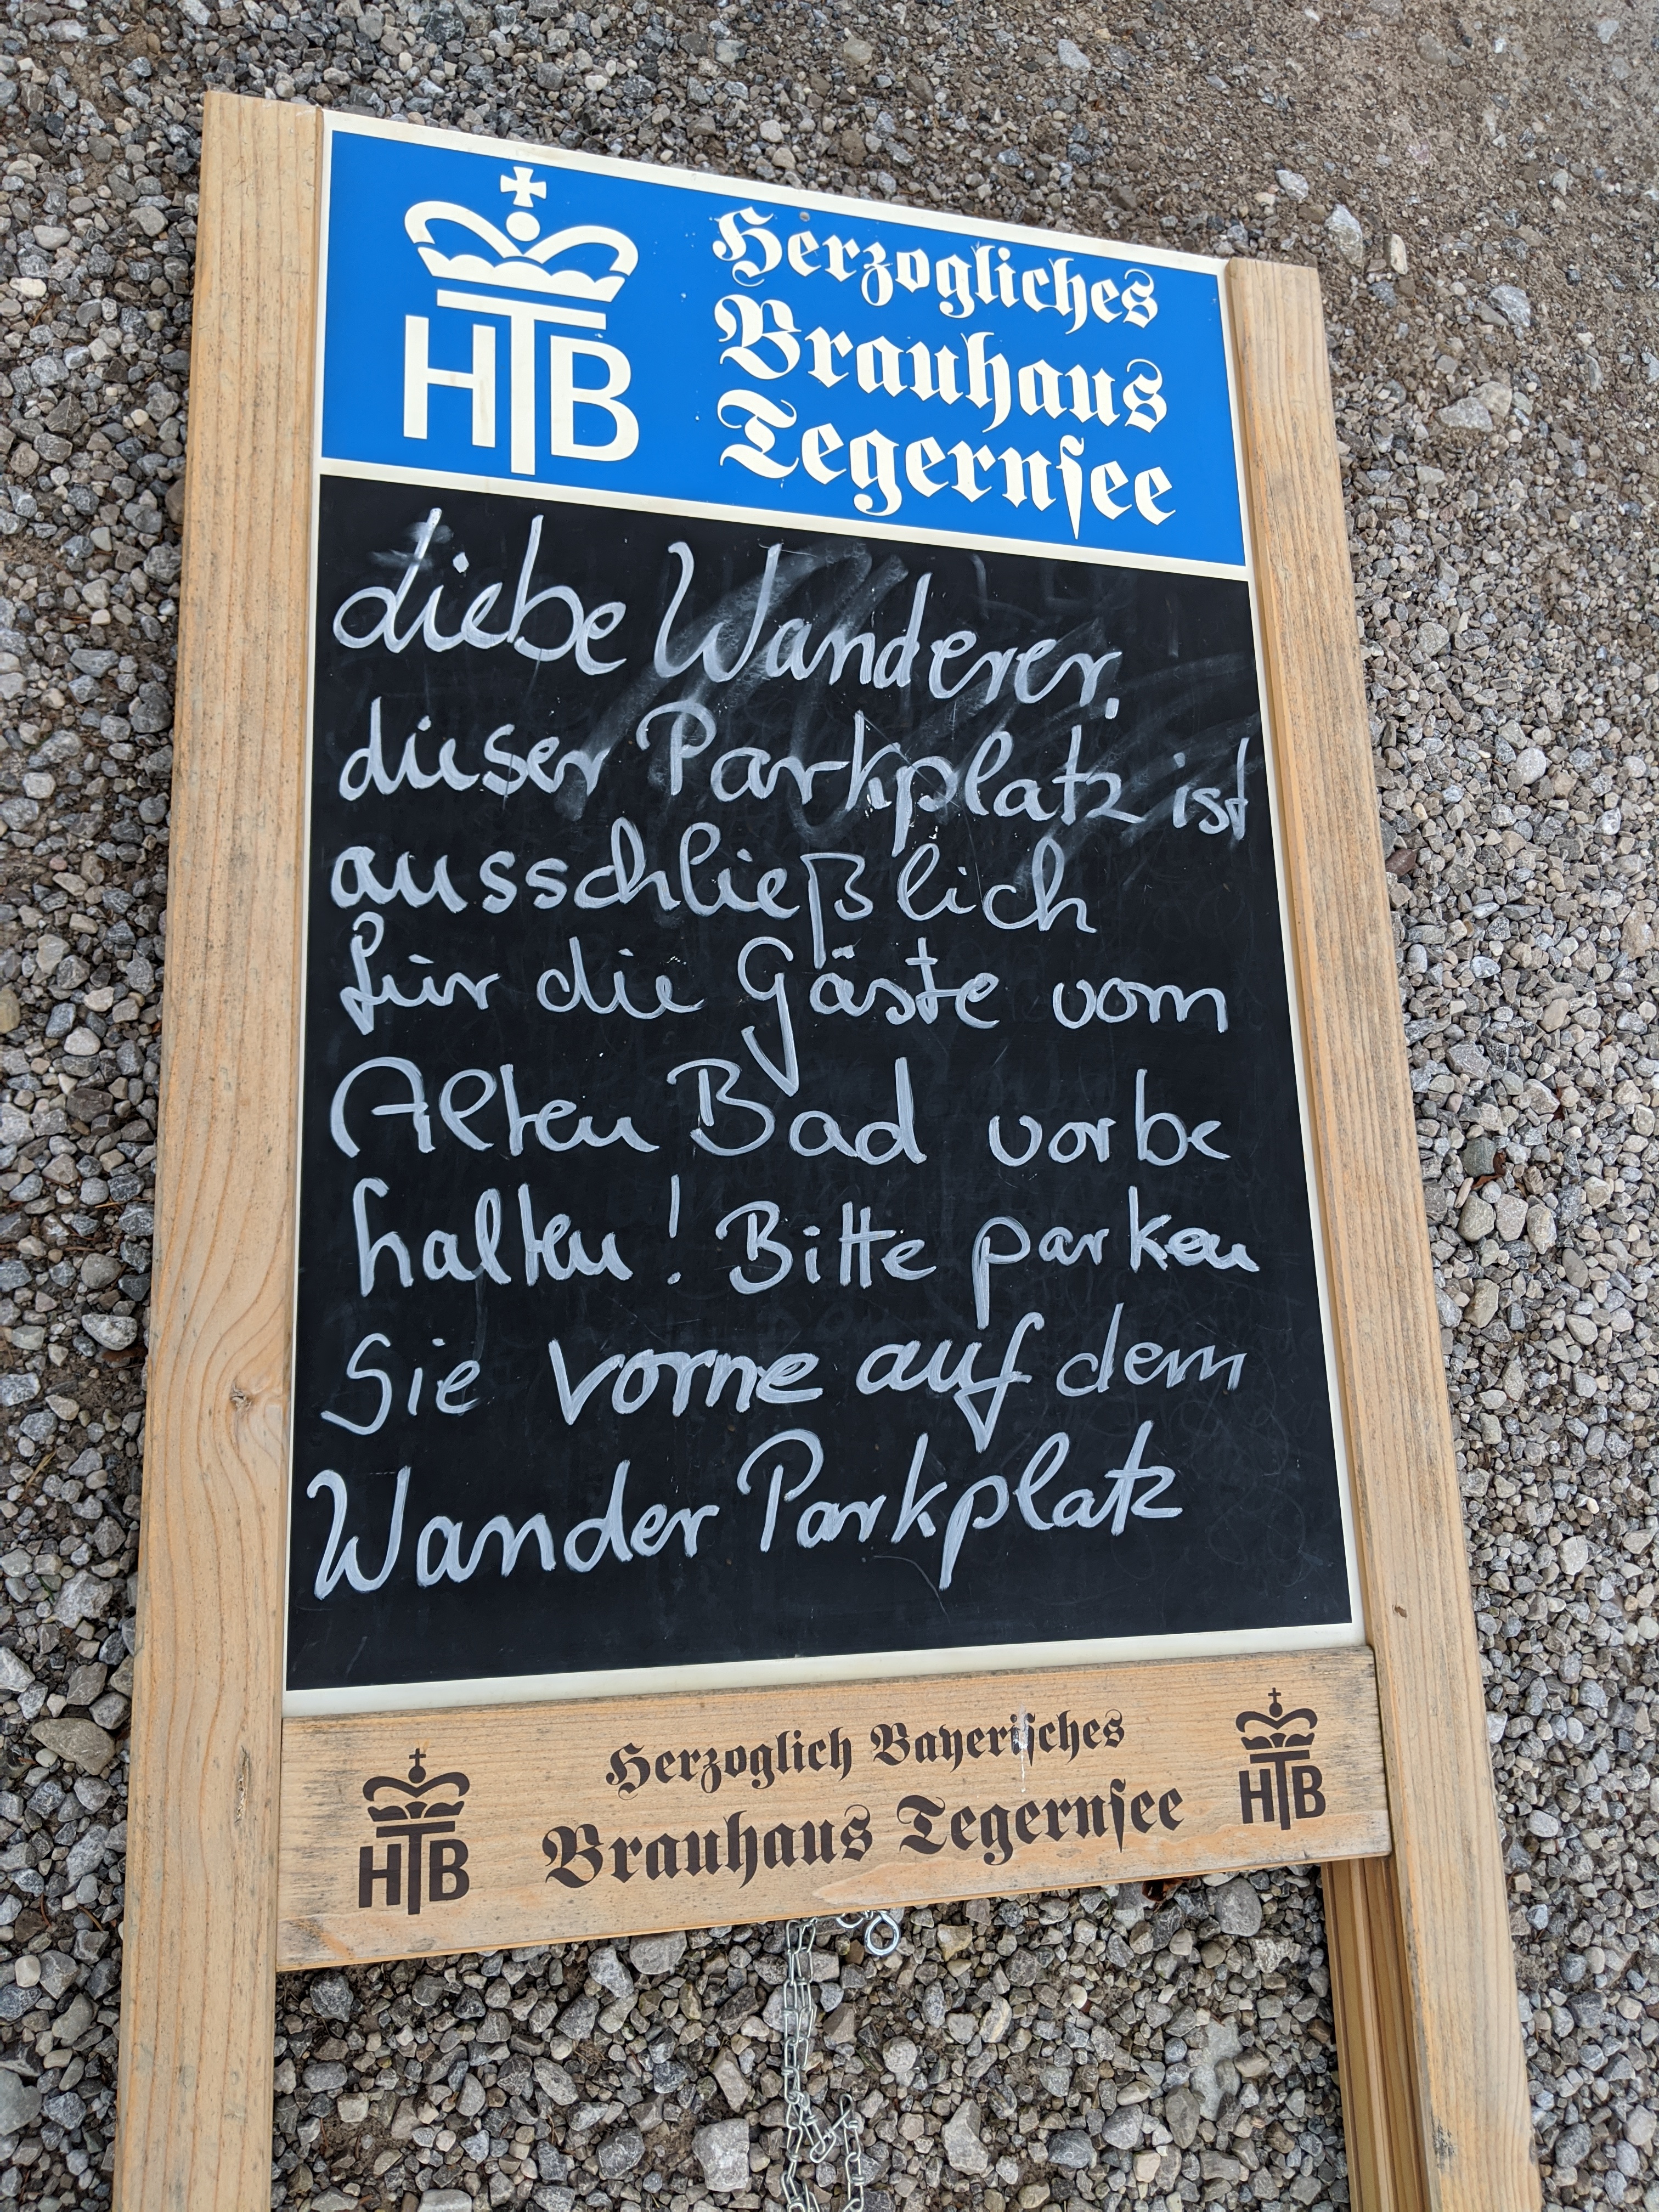 HTB
Herzogliches
Brauhaus
Tegernsee
Liebe Wanderer,
dieser Parkplatz ist
ausschließlich
für die Gäste vom
Alten Bad vorbe
halten! Bitte parken
Sie vorne auf dem
Wander Parkplatz
Herzoglich Bayerisches
Brauhaus Tegernsee
HTB
HTB